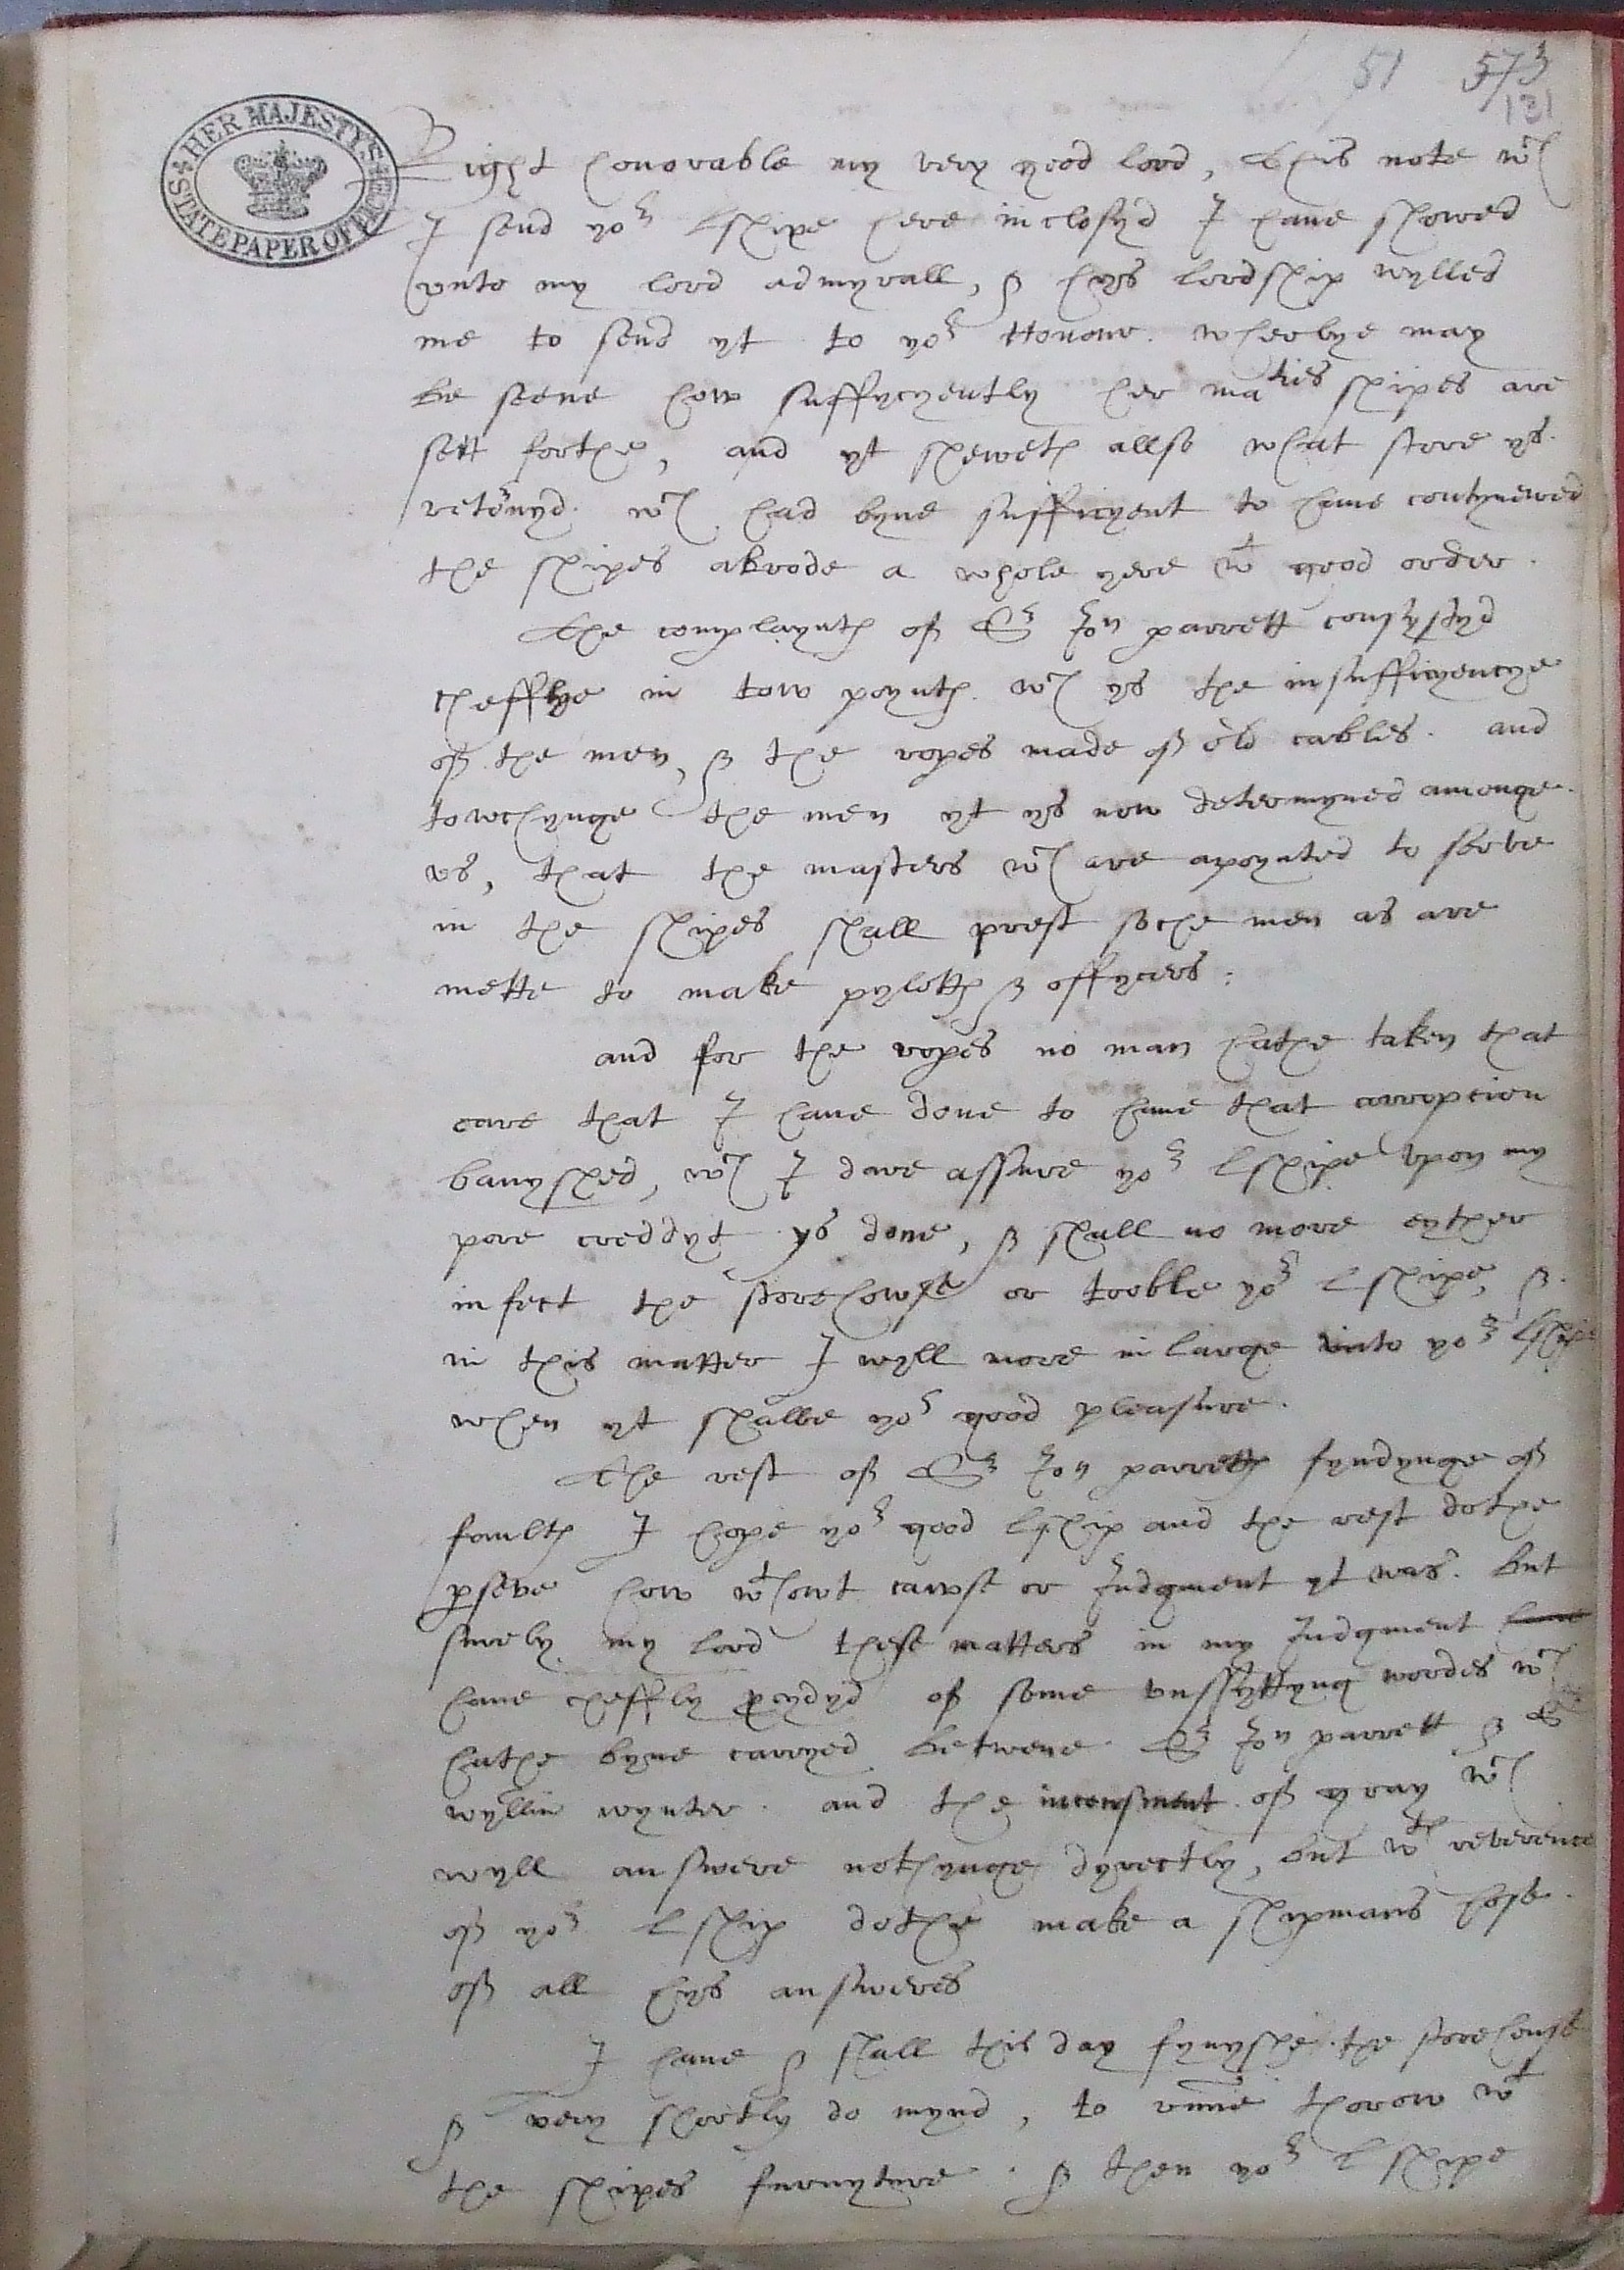 51 573
131
HER MAJESTY'S STATE PAPER OFFICE
Right honorable my very good lord, this note wch
I send yor Lshipe here inclosyd I have showed
vnto my lord admyrall, & hys lordship wylled
me to send yt to yor Honour. wherbye may
be seene how suffycyently her maties shipes are
sett forthe, and yt sheweth allso what store ys
retornyd. wch had byne sufficyent to have contynewed
the shipes abrode a whole yere wt good order.
The complaynts of Sr Jon parrett consystyd
chefflye in tow poynts. wch ys the insufficyencye
of the men, & the ropes made of old cables. and
towchynge the men yt ys now determyned amonge
vs, that the masters wch are apoynted to serve
in the shipes shall prest soche men as are
mette to make pylotts & offycers:
and for the ropes no man hathe taken that
care that I have done to have that corropcion
banyshed, wch I dare assure yor Lshipe vpon my
pore creddyt ys done, & shall no more eyther
infect the storehowse or troble yor Lshipe, &
in this matter I wyll more inlarge vnto yor Lshipe
when yt shalbe yor good pleasure.
The rest of Sr Jon parretts fyndynge of
faults I hope yor good Lship and the rest dothe
pseve how wthowt cawse or Judgment yt was. but
surely my lord these matters in my Judgment have
have cheffly pcydyd of some vnfyttyng wordes wch
hathe byne carryed betwene Sr Jon parrett & Sr
wyllm wynter. and the incensment of gray wch
wyll answere nothynge dyrectly, but wth reverence
of yor Lship dothe make a shipmans hose
of all hys answeres
I have & shall this day fynyshe the storehouse
& very shortly do mynd, to runne thorow wt
the shipes furnyture. & then yor Lshipe